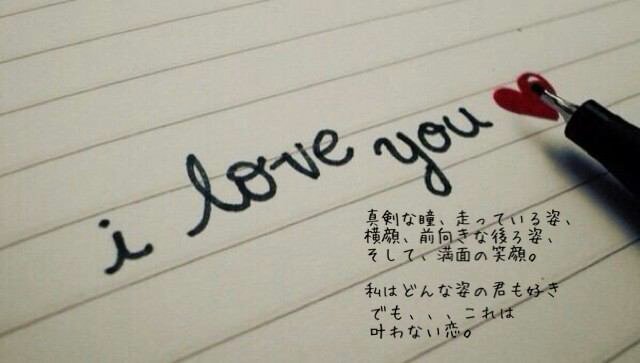 i love you
真剣な瞳、走っている姿、
横顔、前向きな後ろ姿、
そして、満面の笑顔。
私はどんな姿の君も好き
でも、、、これは
叶わない恋。